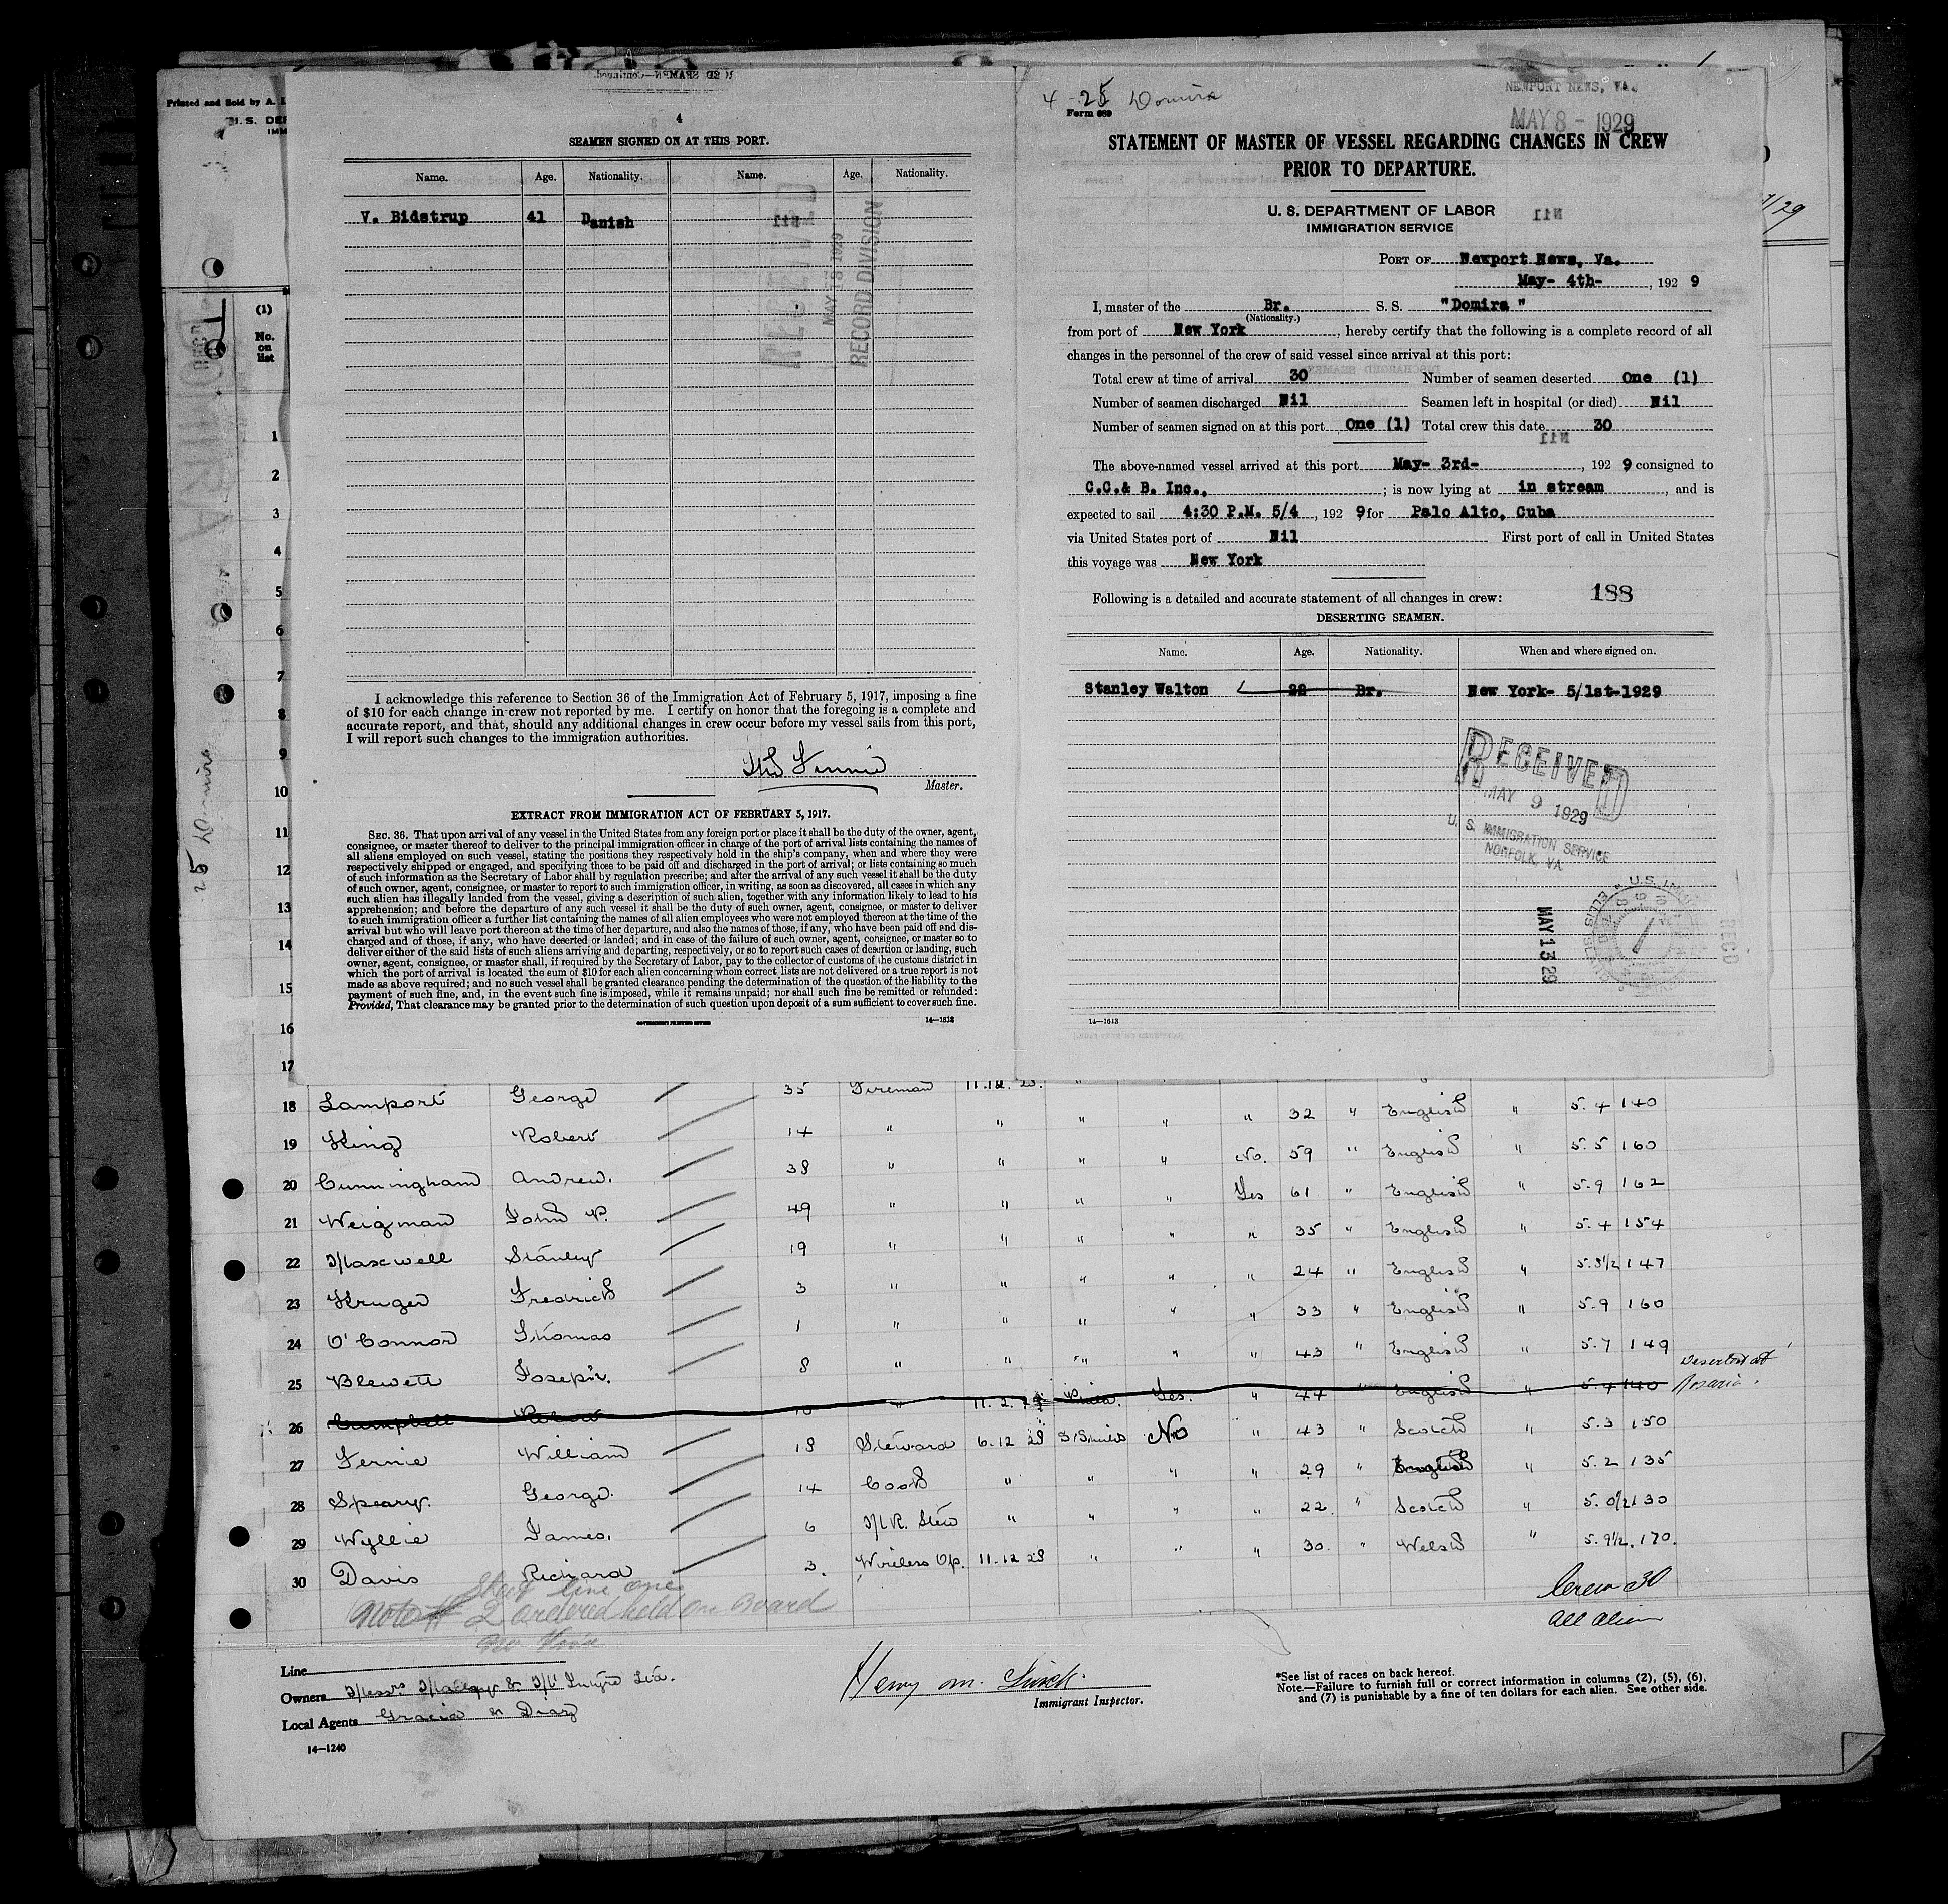 Printed and Sold by A. L
U. S. DE
IMM
(1)
No.
on
list
1
2
3
4
5
6
7
8
9
10
11
12
13
14
15
16
17
4
SEAMEN SIGNED ON AT THIS PORT.
Name. Age. Nationality. Name. Age. Nationality.
V. Bidstrup 41 Danish
RECEIVED
MAY 18 1929
RECORD DIVISION
I acknowledge this reference to Section 36 of the Immigration Act of February 5, 1917, imposing a fine
of $10 for each change in crew not reported by me. I certify on honor that the foregoing is a complete and
accurate report, and that, should any additional changes in crew occur before my vessel sails from this port,
I will report such changes to the immigration authorities.
Master.
EXTRACT FROM IMMIGRATION ACT OF FEBRUARY 5, 1917.
SEC. 36. That upon arrival of any vessel in the United States from any foreign port or place it shall be the duty of the owner, agent,
consignee, or master thereof to deliver to the principal immigration officer in charge of the port of arrival lists containing the names of
all aliens employed on such vessel, stating the positions they respectively hold in the ship's company, when and where they were
respectively shipped or engaged, and specifying those to be paid off and discharged in the port of arrival; or lists containing so much
of such information as the Secretary of Labor shall by regulation prescribe; and after the arrival of any such vessel it shall be the duty
of such owner, agent, consignee, or master to report to such immigration officer, in writing, as soon as discovered, all cases in which any
such alien has illegally landed from the vessel, giving a description of such alien, together with any information likely to lead to his
apprehension; and before the departure of any such vessel it shall be the duty of such owner, agent, consignee, or master to deliver
to such immigration officer a further list containing the names of all alien employees who were not employed thereon at the time of the
arrival but who will leave port thereon at the time of her departure, and also the names of those, if any, who have been paid off and dis-
charged and of those, if any, who have deserted or landed; and in case of the failure of such owner, agent, consignee, or master so to
deliver either of the said lists of such aliens arriving and departing, respectively, or so to report such cases of desertion or landing, such
owner, agent, consignee, or master shall, if required by the Secretary of Labor, pay to the collector of customs of the customs district in
which the port of arrival is located the sum of $10 for each alien concerning whom correct lists are not delivered or a true report is not
made as above required; and no such vessel shall be granted clearance pending the determination of the question of the liability to the
payment of such fine, and, in the event such fine is imposed, while it remains unpaid; nor shall such fine be remitted or refunded:
Provided, That clearance may be granted prior to the determination of such question upon deposit of a sum sufficient to cover such fine.
GOVERNMENT PRINTING OFFICE 14—1613
4 - 25 Domira
Form 689
NEWPORT NEWS, VA.
MAY 8 - 1929
STATEMENT OF MASTER OF VESSEL REGARDING CHANGES IN CREW
PRIOR TO DEPARTURE.
U. S. DEPARTMENT OF LABOR
IMMIGRATION SERVICE
PORT OF Newport News, Va.
May- 4th- , 192 9
I, master of the Br. S. S. "Domira "
(Nationality.)
from port of New York , hereby certify that the following is a complete record of all
changes in the personnel of the crew of said vessel since arrival at this port:
Total crew at time of arrival 30 Number of seamen deserted One (1)
Number of seamen discharged Nil Seamen left in hospital (or died) Nil
Number of seamen signed on at this port One (1) Total crew this date 30
The above-named vessel arrived at this port May- 3rd- , 192 9 consigned to
C.C.& B. Inc., ; is now lying at in stream , and is
expected to sail 4:30 P.M. 5/4 , 192 9 for Palo Alto, Cuba
via United States port of Nil First port of call in United States
this voyage was New York
Following is a detailed and accurate statement of all changes in crew: 188
DESERTING SEAMEN.
Name. Age. Nationality. When and where signed on.
Stanley Walton 22 Br. New York- 5/1st-1929
RECEIVED
MAY 9 1929
U. S. IMMIGRATION SERVICE
NORFOLK, VA
MAY 13 29
14—1613
25 Domira
18 Lamport George 35 Fireman 11.12.28. " " " 32 " English " 5.4 140
19 King Robert 14 " " " " No. 59 " English " 5.5 160
20 Cunningham Andrew. 38 " " " " Yes 61 " English " 5.9 162
21 Weigman John P. 49 " " " " " 35 " English " 5.4 154
22 Maxwell Stanley 19 " " " " " 24 " English " 5.8 1/2 147
23 Kruger Fredrick 3 " " " " " 33 " English " 5.9 160
24 O'Connor Thomas 1 " " " " " 43 " English " 5.7 149
25 Blewett Joseph. 8 " " " Yes. " 44 " English " 5.4 140 Deserted at Rosario.
26 Campbell 10 " 11.2.29 43 " Scotch " 5.3 150
27 Fernie William 18 Steward 6.12 28 S/Shields No " 29 " English " 5.2 135
28 Speary. George. 14 Cook " " " " 22. " Scotch " 5.0 1/2 130
29 Wyllie James. 6 M.R. Stew " " " " 30. " Welsh " 5.9 1/2. 170.
30 Davis Richard 3. Wireless Op. 11.12 28 " "
Crew 30
all alien
Note # 2 ordered held on Board
Line
Owners Messrs Maclay & McIntyre Ltd.
Local Agents Gracia & Diaz
14—1240
Henry M.
Immigrant Inspector.
*See list of races on back hereof.
Note.—Failure to furnish full or correct information in columns (2), (5), (6).
and (7) is punishable by a fine of ten dollars for each alien. See other side.